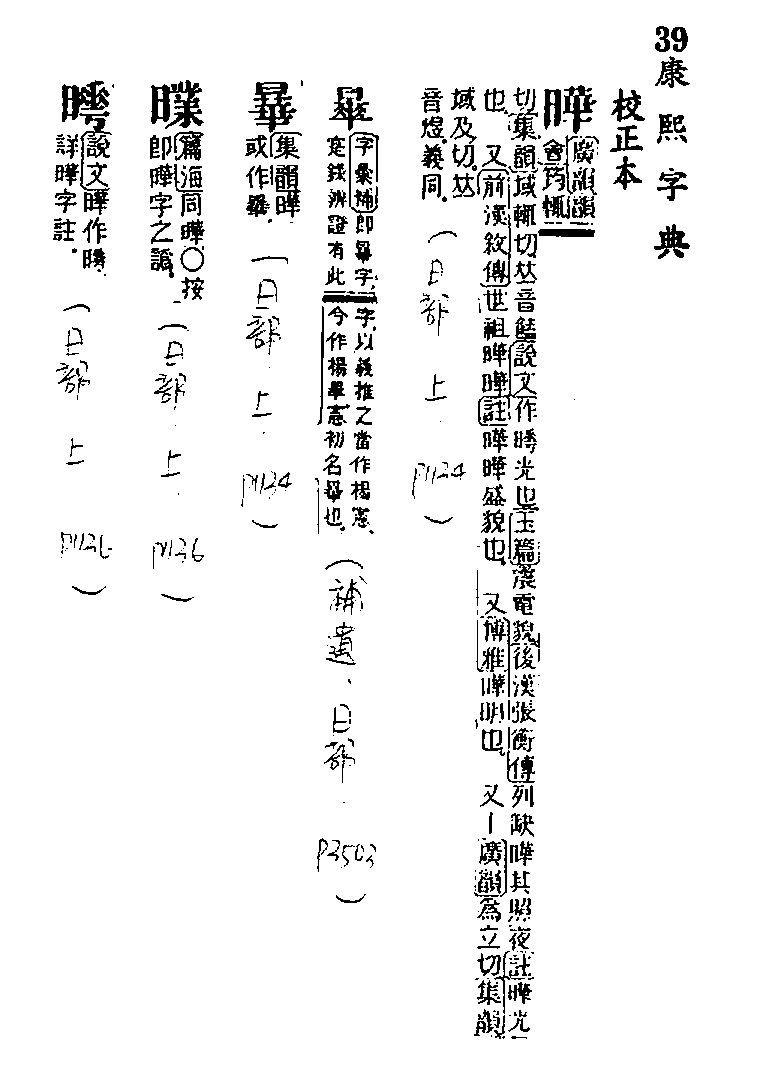 39
康熙字典
校正本
曄
廣韻韻
會筠輒
切集韻域輒切𠀤音饁說文作㬙光也玉篇震電貌後漢張衡傳列缺曄其照夜註曄光
也 又前漢敘傳世祖曄曄註曄曄盛貌也 又博雅曄明也 又廣韻為立切集韻
域及切𠀤
音煜義同
(日部 上 P1134)
字彙補即曅字
宛錢辨證有此
字以義推之當作楊憲
今作楊 憲初名 也
(補遺·日部 P3503)
集韻曄
或作曅
(日部 上 P1134)
篇海同曄○按
即曄字之譌
(日部 上 P1136)
㬙
說文曄作㬙
詳曄字註
(日部 上 P1136)